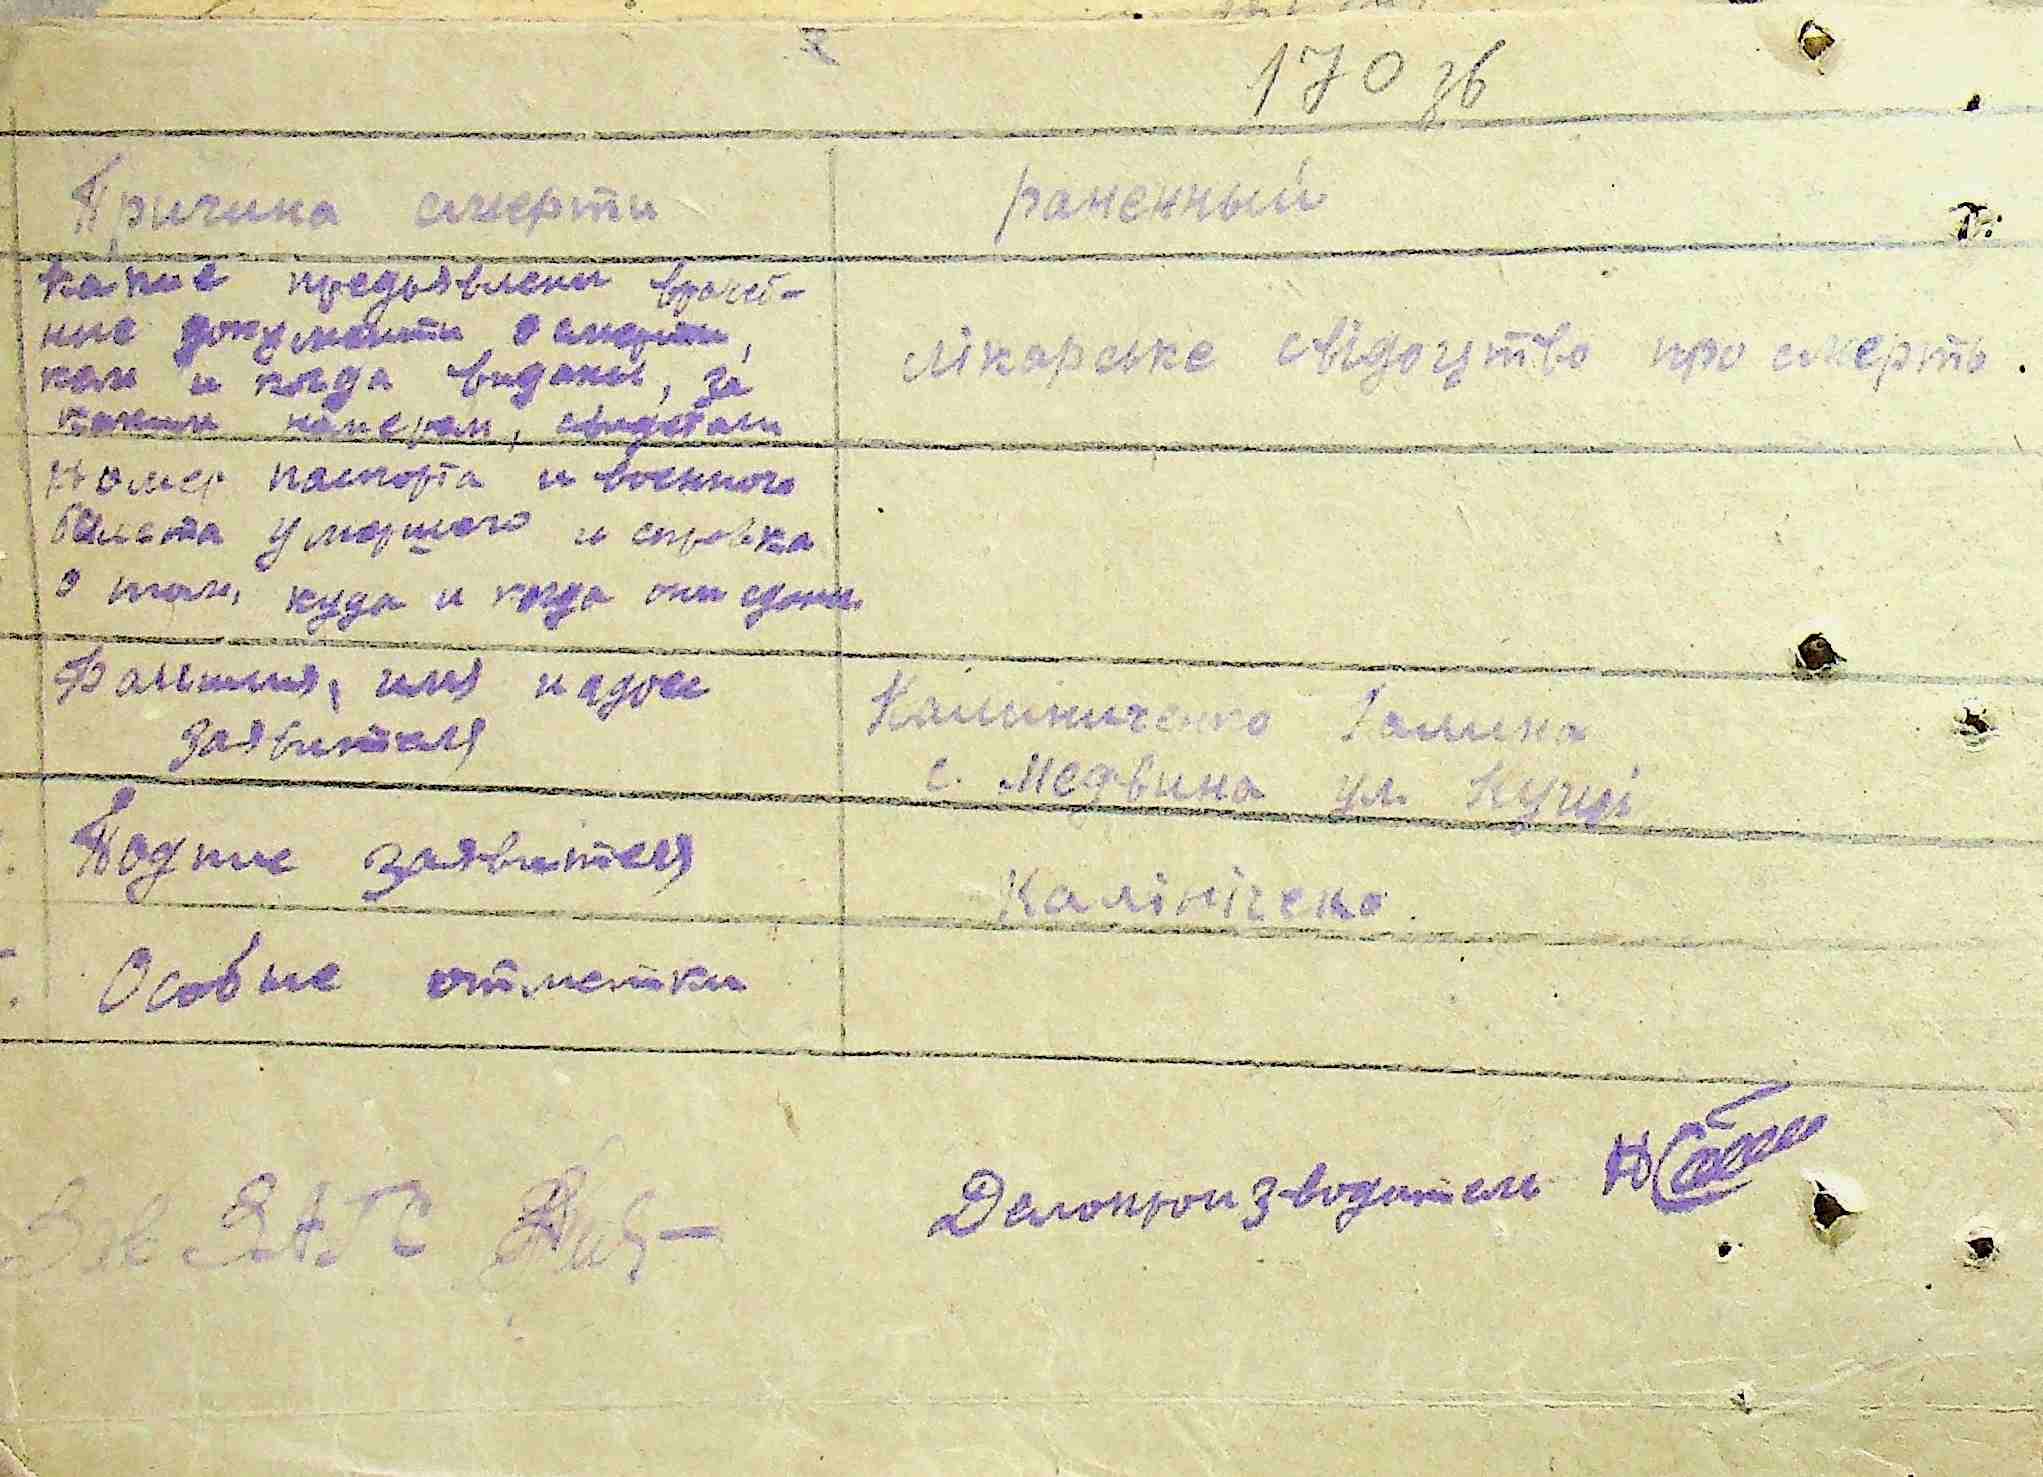 170 зв
Причина смерти
раненный
Какие предъявлени врачеб-
ние документи о смерти,
кем и когда видани, за
каким номером, свидетели
лікарське свідоцтво про смерть.
Номер паспорта и военного
билета умершего и справка
о том, куда и когда они сдани.
Фамилия, имя и адрес
заявителя
Калиниченко Галина
с. Медвина ул. Кущі
Подпис заявителя
Калініченко.
Особые отметки
Зав ЗАГС
Делопроизводитель